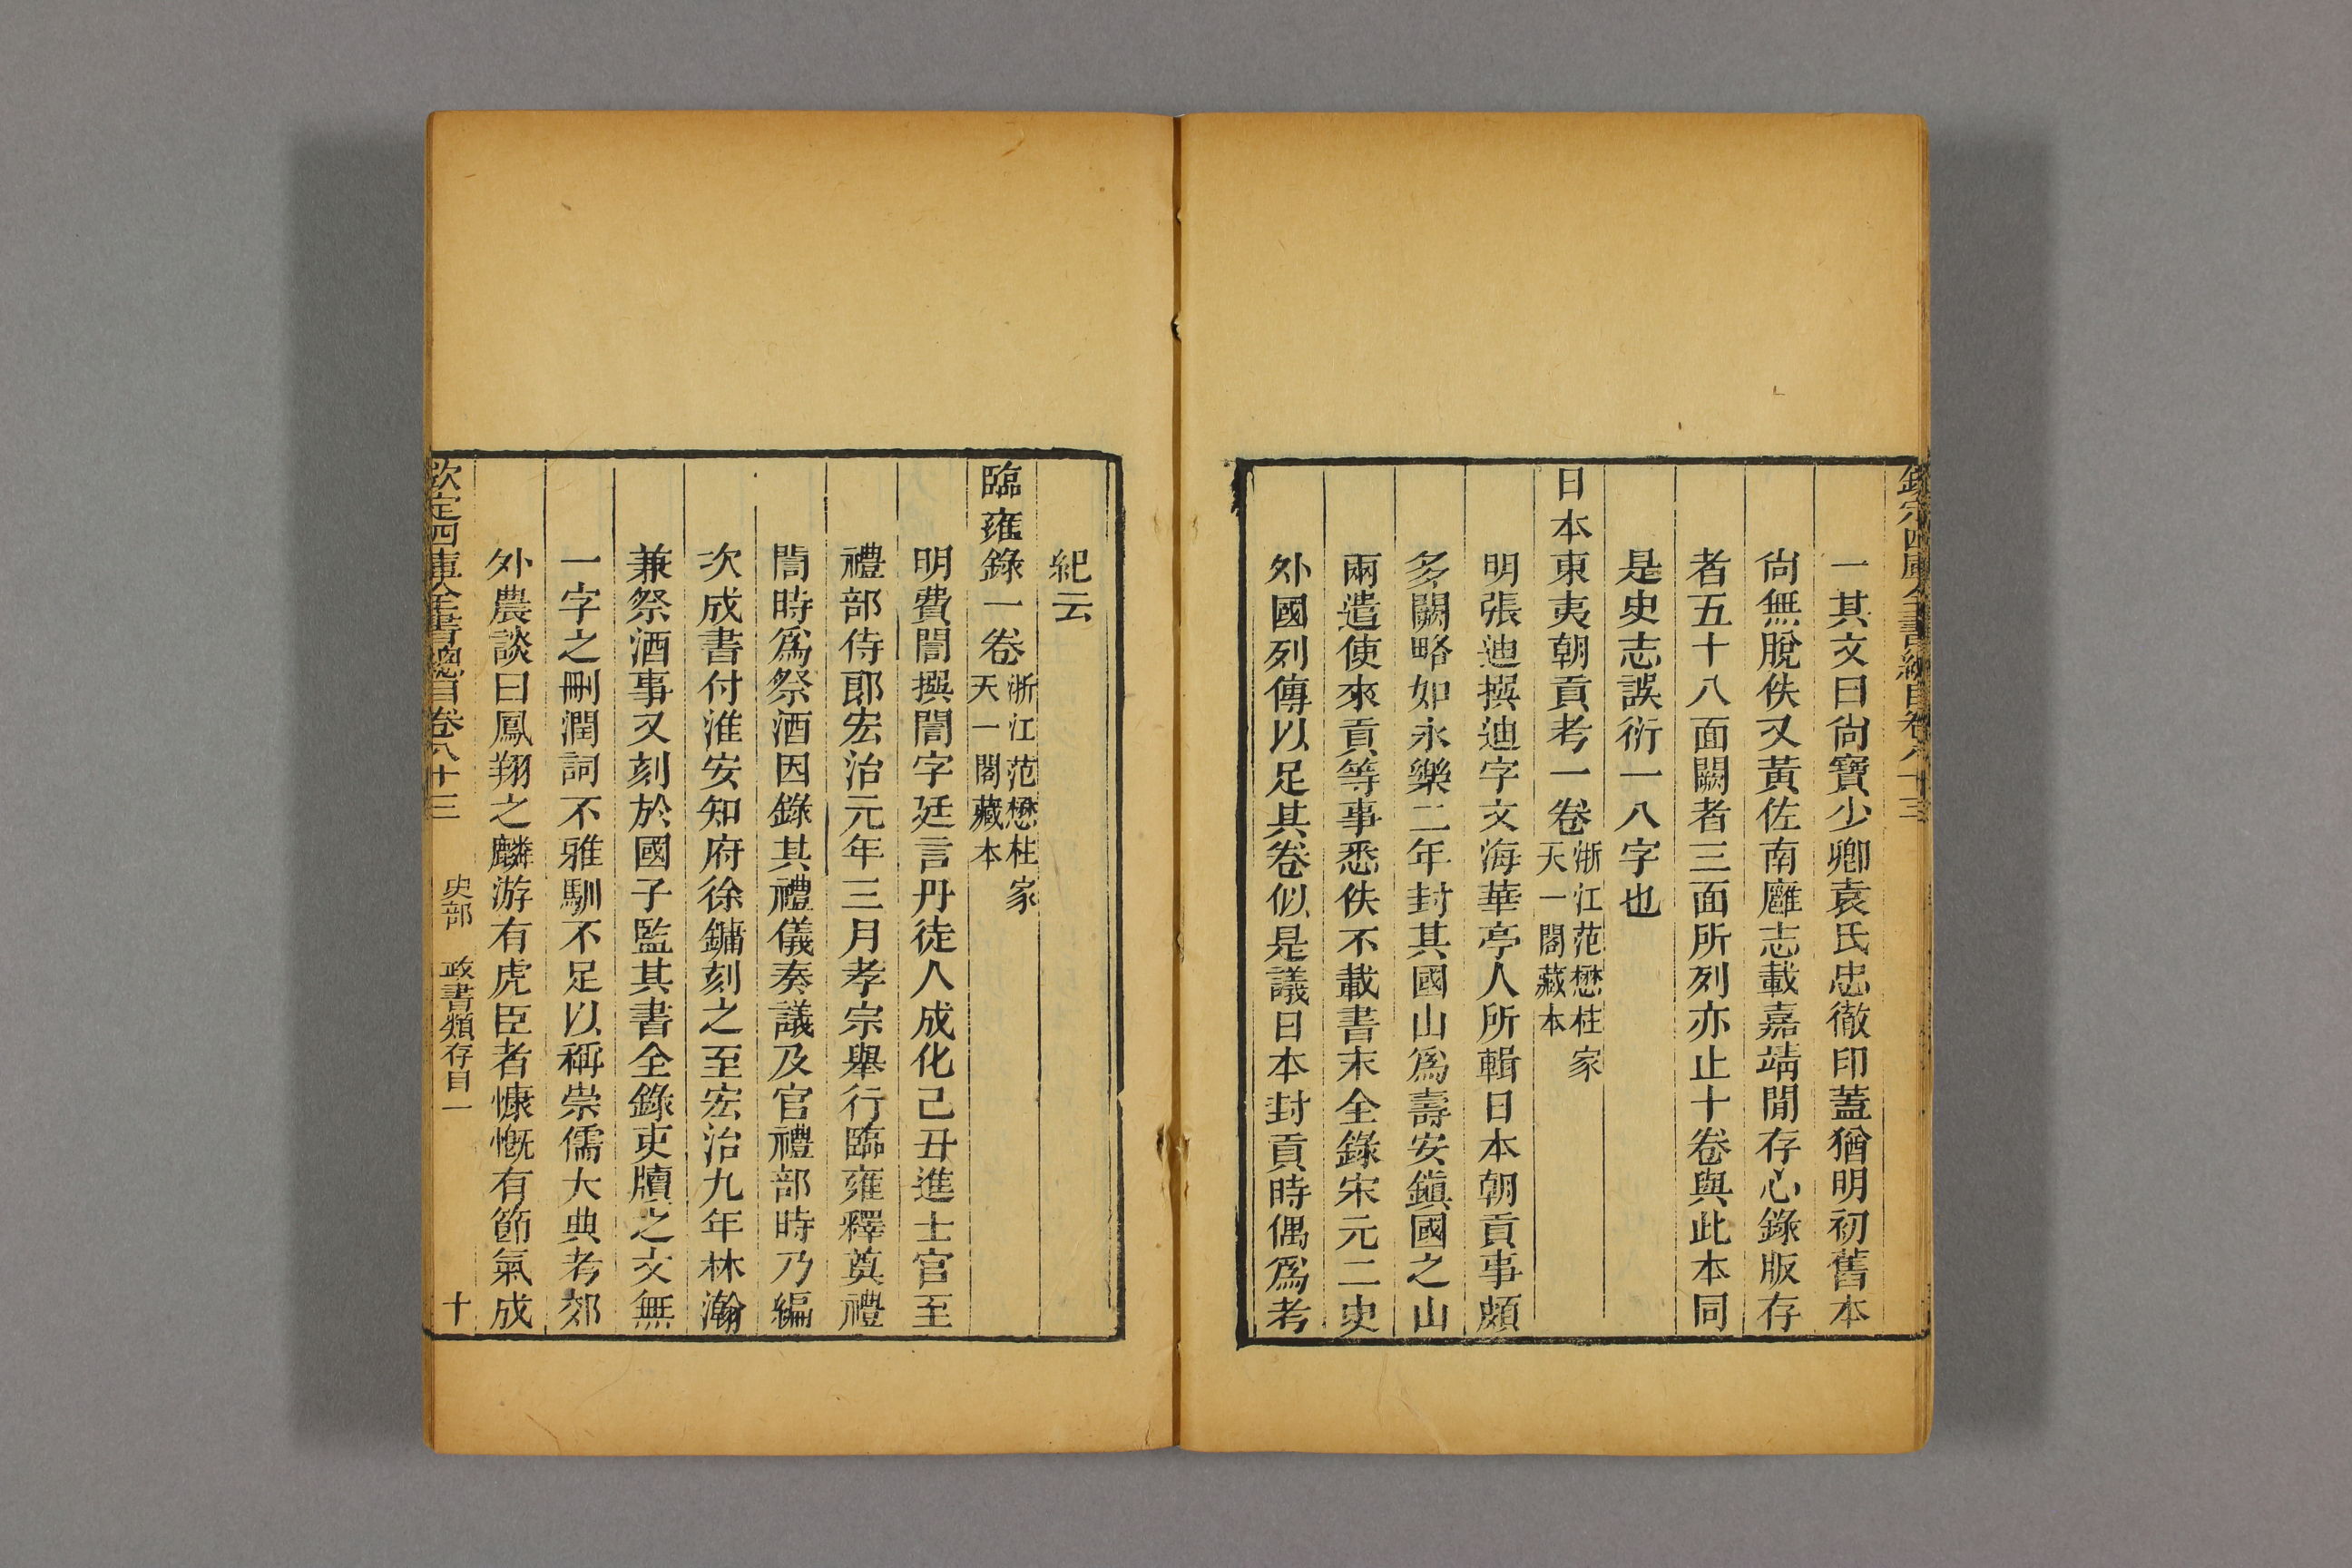 欽定四庫全書總目卷八十三
一其文曰尙寶少卿袁氏忠徹印蓋猶明初舊本
尙無脫佚又黃佐南廱志載嘉靖閒存心錄版存
者五十八面闕者三面所列亦止十卷與此本同
是史志誤衍一八字也
日本東夷朝貢考一卷浙江范懋柱家天一閣藏本
明張迪撰迪字文海華亭人所輯日本朝貢事頗
多闕略如永樂二年封其國山爲壽安鎭國之山
兩遣使來貢等事悉佚不載書末全錄宋元二史
外國列傳以足其卷似是議日本封貢時偶爲考
紀云
臨雍錄一卷浙江范懋柱家天一閣藏本
明費誾撰誾字廷言丹徒人成化己丑進士官至
禮部侍郎宏治元年三月孝宗舉行臨雍釋奠禮
誾時爲祭酒因錄其禮儀奏議及官禮部時乃編
次成書付淮安知府徐鏞刻之至宏治九年林瀚
兼祭酒事又刻於國子監其書全錄吏牘之文無
一字之刪潤詞不雅馴不足以稱崇儒大典考郊
外農談曰鳳翔之麟游有虎臣者慷慨有節氣成
欽定四庫全書總目卷八十三　史部　政書類存目一　十